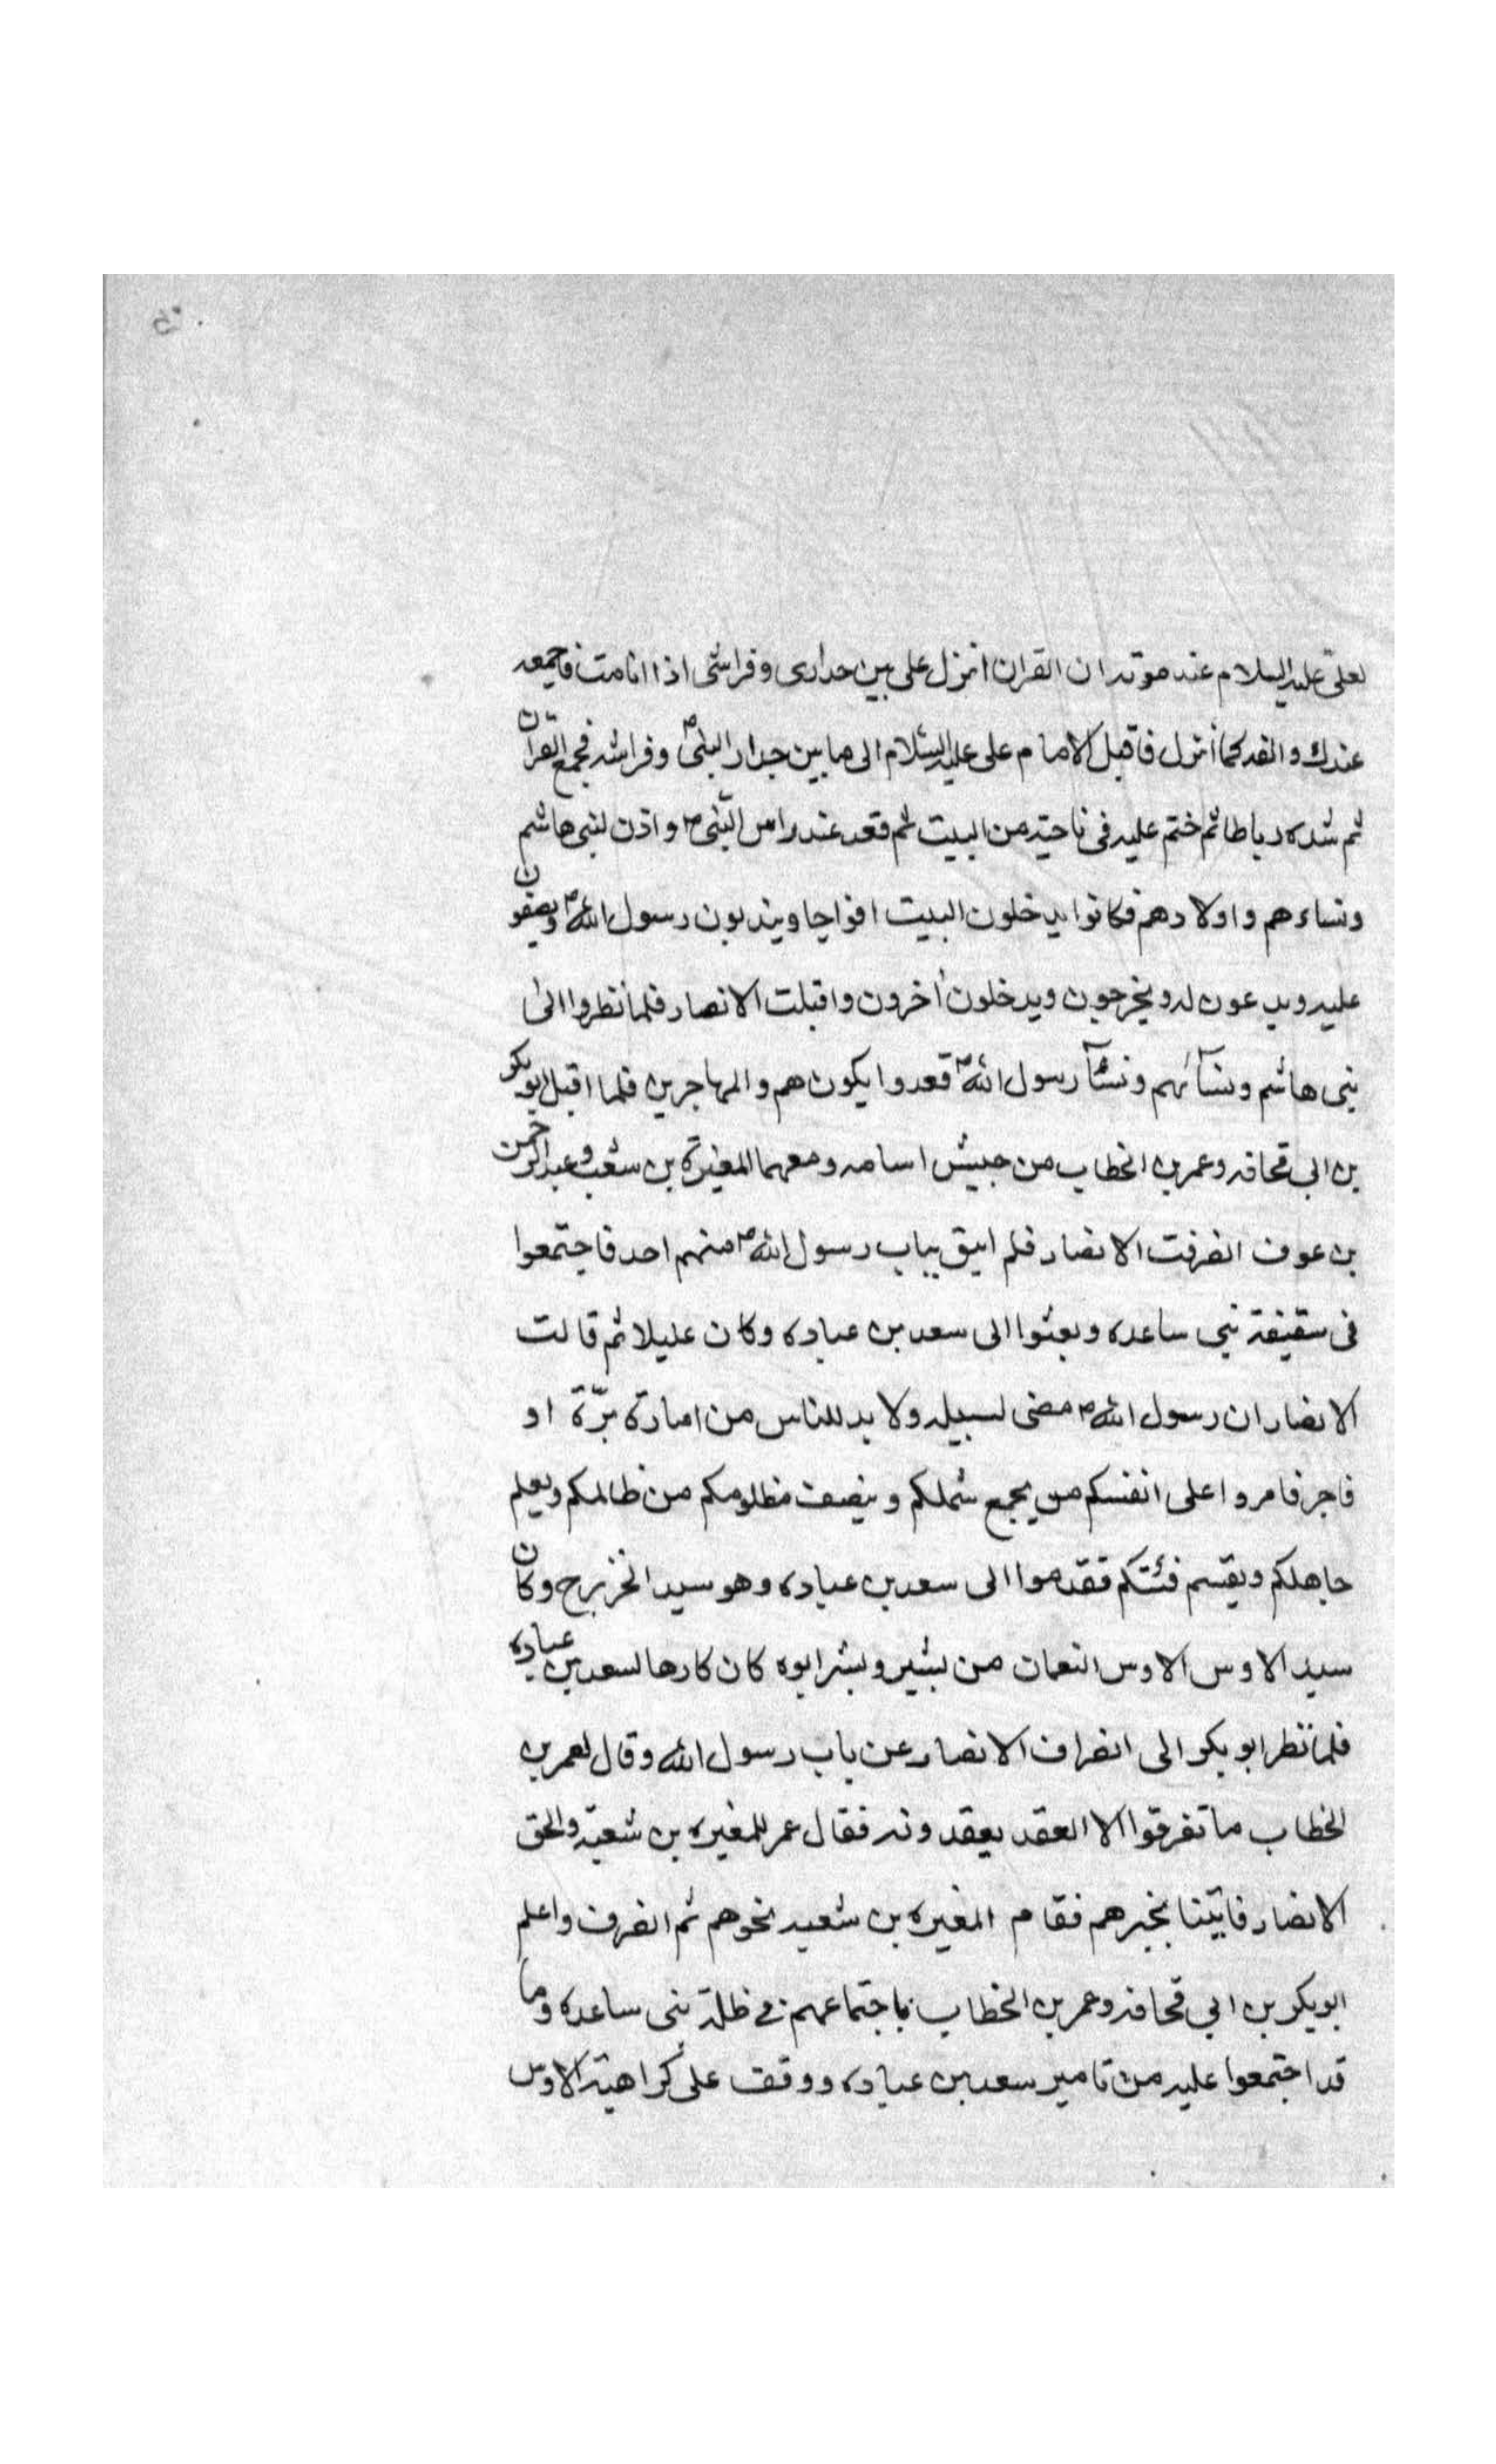 لعلی علیه السلام عند موته ان القران انزل علی بین جداری و فراشی اذا انا مت فاجمعه
عندك والفه كما أنزل فاقبل الامام علی علیه السلام الی ما بین جدار النبی ص وفراشه فجمع القرآن
ثم شده رباطا ثم ختم علیه فی ناحیة من البیت ثم قعد عند راس النبی ص واذن لبنی هاشم
ونساءهم واولادهم فكانوا یدخلون البیت افواجا ویندبون رسول الله ص ویصفون
علیه ویدعون له ویخرجون ویدخلون أخرون واقبلت الانصار فلما نظروا الی
بنی هاشم ونسآئهم ونسآ رسول الله ص قعدوا یكون هم والمهاجرین فلما اقبل ابو بكر
بن ابی قحافه وعمر بن الخطاب من جیش اسامه ومعهما المغیرة بن شعبه وعبد الرحمن
بن عوف انصرفت الانصار فلم ابیق بباب رسول الله ص منهم احد فاجتمعوا
فی سقیفة بنی ساعده وبعثوا الی سعد بن عباده وكان علیلا ثم قالت
الانصار ان رسول الله ص مضی لسبیله ولا بد للناس من امارة برّة او
فاجر فامروا علی انفسكم من یجمع شملكم وینصف مظلومكم من ظالمكم ویعلم
جاهلكم ویقسم فئتكم فقدموا الی سعد بن عباده وهو سید الخزرج وكان
سید الاوس الاوس النعمان من بشیر وبشر ابوه كان كارها لسعد بن عباده
فلما نظر ابو بكر الی انصراف الانصار عن باب رسول الله وقال لعمر بن
الخطاب ما تفرقوا الا العقد یعقدونه فقال عمر للمغیره بن شعبة والحق
الانصار فاتینا بخبرهم فقام المغیره بن شعبه نحوهم ثم انصرف واعلم
ابو بكر بن ابی قحافه وعمر بن الخطاب باجتماعهم فی ظلة بنی ساعده وما
قد اجتمعوا علیه من تامیر سعد بن عباده ووقف علی كراهیة الاوس